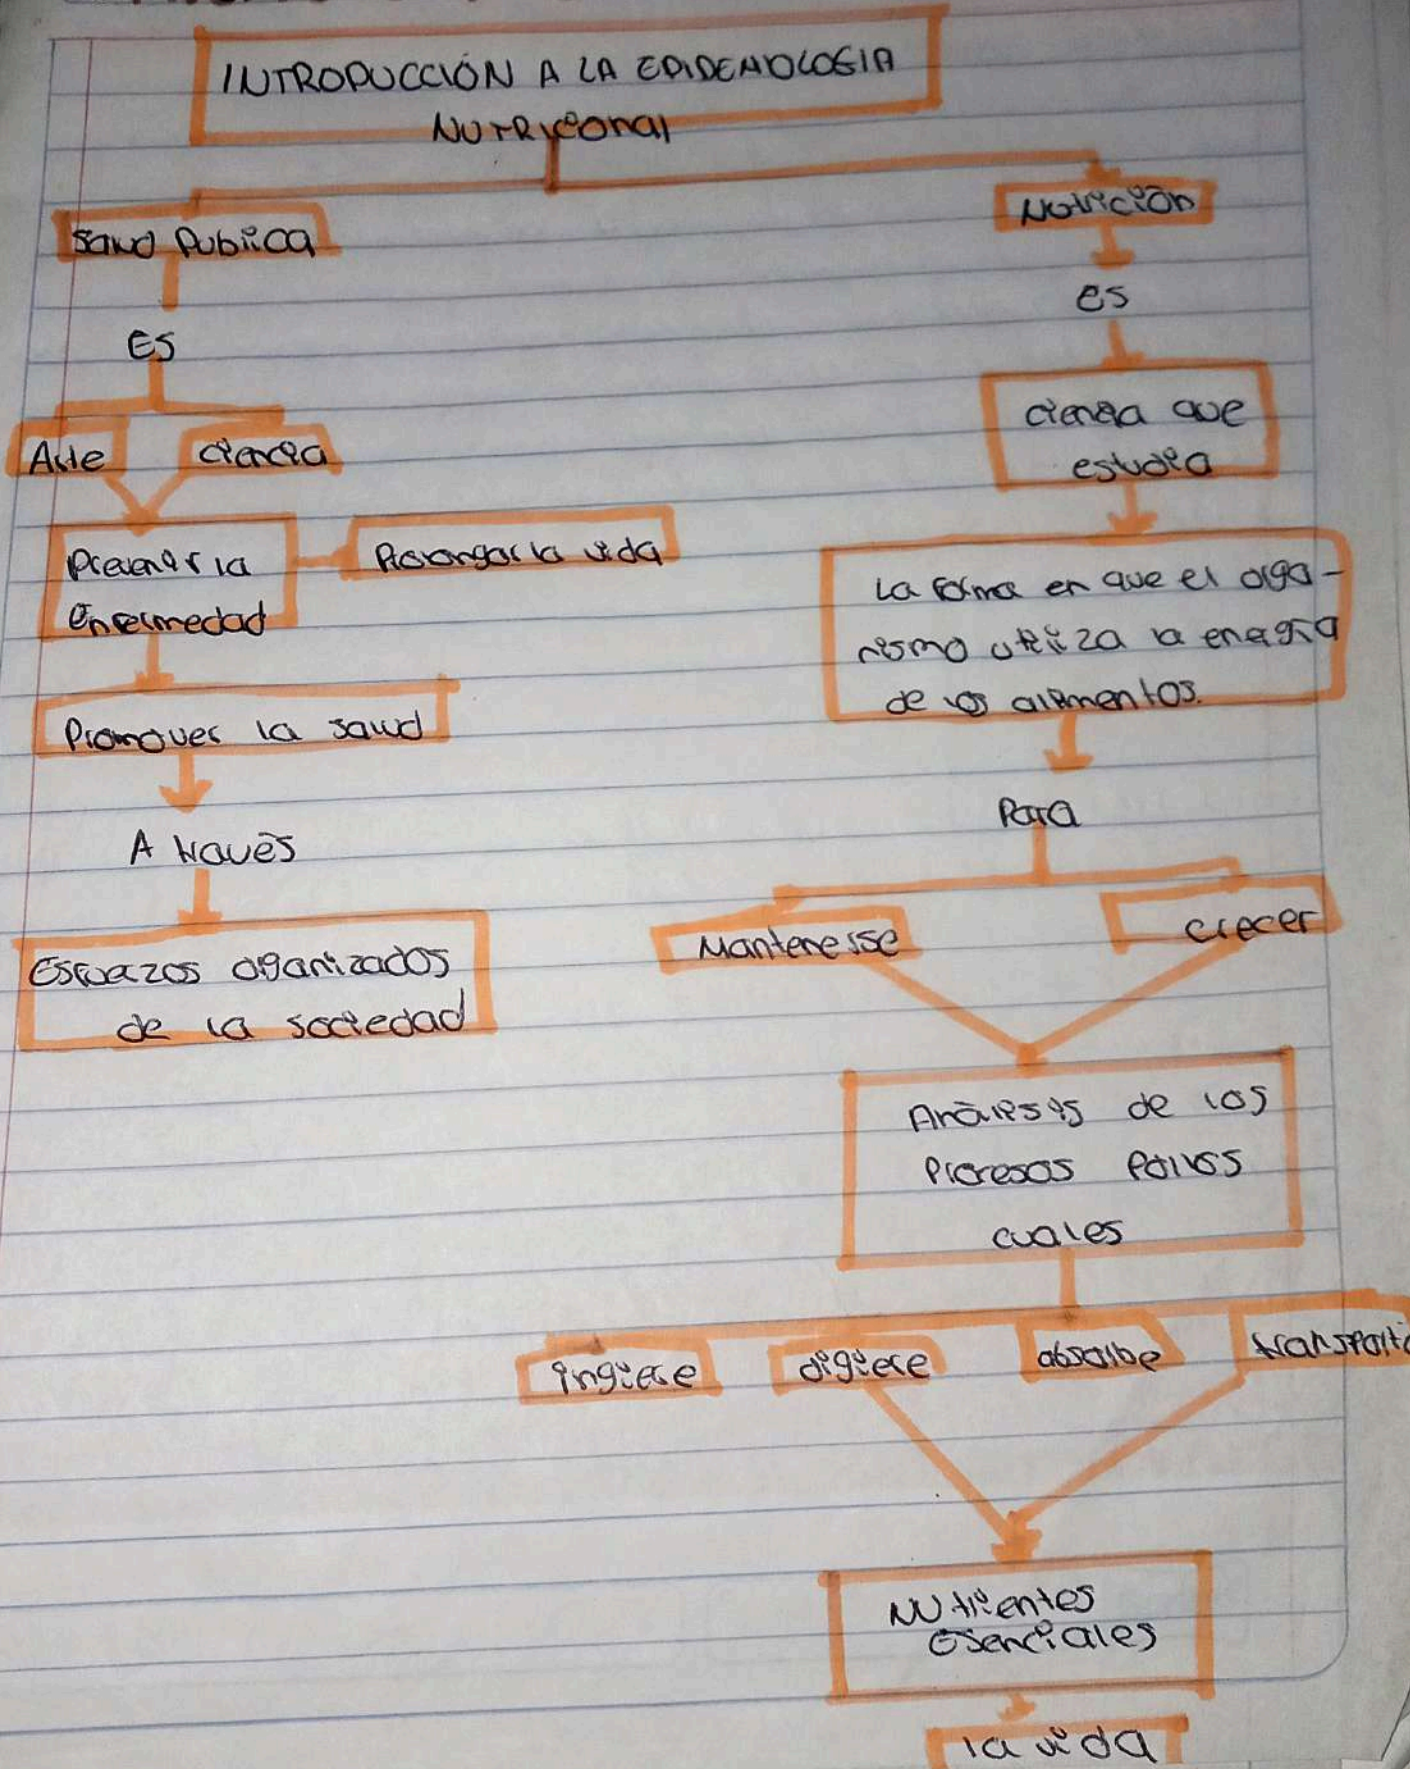 INTRODUCCIÓN A LA EPIDEMOLOGIA
NUTRICIONAL
Salud Publica
ES
Arte
ciencia
Prevenir la
Enfermedad
Prolongar la vida
Promover la salud
A través
Esfuerzos organizados
de la sociedad
Nutrición
es
ciencia que
estudia
La forma en que el orga-
nismo utiliza la energía
de los alimentos.
Para
Mantenerse
crecer
Análisis de los
Procesos por los
cuales
ingiere
digiere
absorbe
Nutrientes
esenciales
la vida